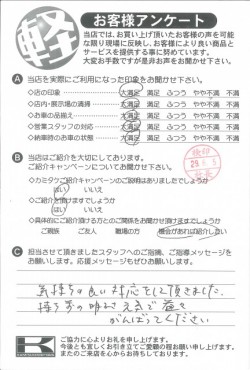 軽
お客様アンケート
当店では、お買い上げ頂いたお客様の声を可能
な限り現場に反映し、お客様により良い商品と
サービスを提供する事に努めています。
大変お手数ですが是非お声をお聞かせ下さい。
A 当店を実際にご利用になった印象をお聞かせ下さい。
◇店の印象 大満足 満足 ふつう やや不満 不満
◇店内・展示場の清掃 大満足 満足 ふつう やや不満 不満
◇お車の品揃え 大満足 満足 ふつう やや不満 不満
◇営業スタッフの対応 大満足 満足 ふつう やや不満 不満
◇納車時のお車の状態 大満足 満足 ふつう やや不満 不満
B 当店はご紹介を大切にしております。
ご紹介キャンペーンについてお聞かせ下さい。
◇カミタケご紹介キャンペーンのご説明はありましたでしょうか
はい いいえ
◇ご紹介を頂けますでしょうか
はい いいえ
◇具体的にご紹介頂ける方とのご関係をお聞かせ頂けますでしょうか
ご親族 ご友人 職場の方 機会があれば紹介したい
C 担当させて頂きましたスタッフへのご指摘、ご指導メッセージを
お願いします。応援メッセージもぜひお願いします。
気持ちの良い対応をして頂きました。
持ち前の明れ元気で益々
がんばってください
K
ご協力に心よりお礼を申し上げます。
今後とも宜しくお引き立てご愛顧の程お願い申し上げます。
またのご来店を心からお待ちしております。